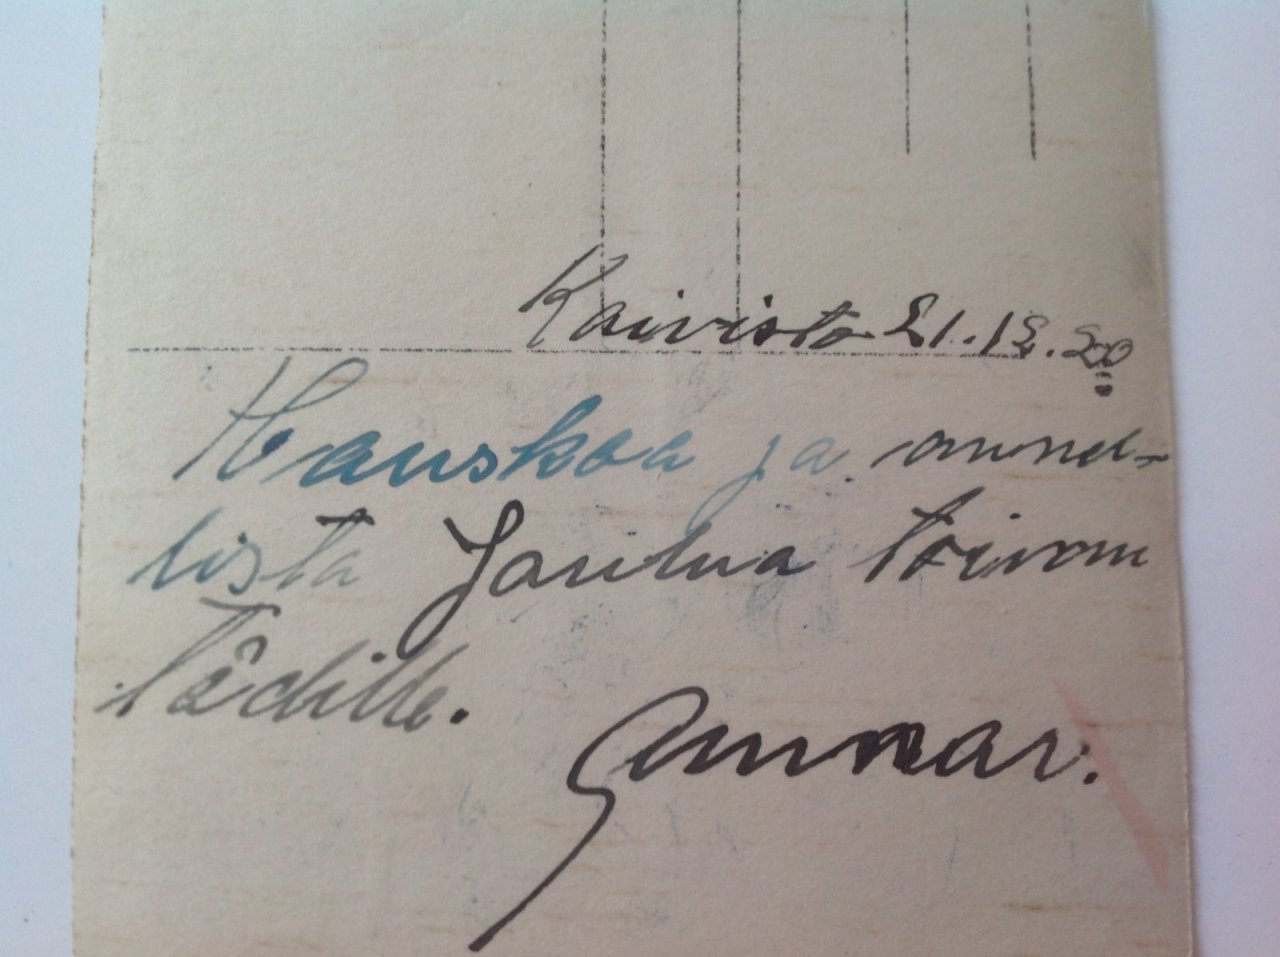 Koivisto 21.12.20
Hauskaa ja onnel-
lista Joulua toivon
Tädille.
Gunnar.